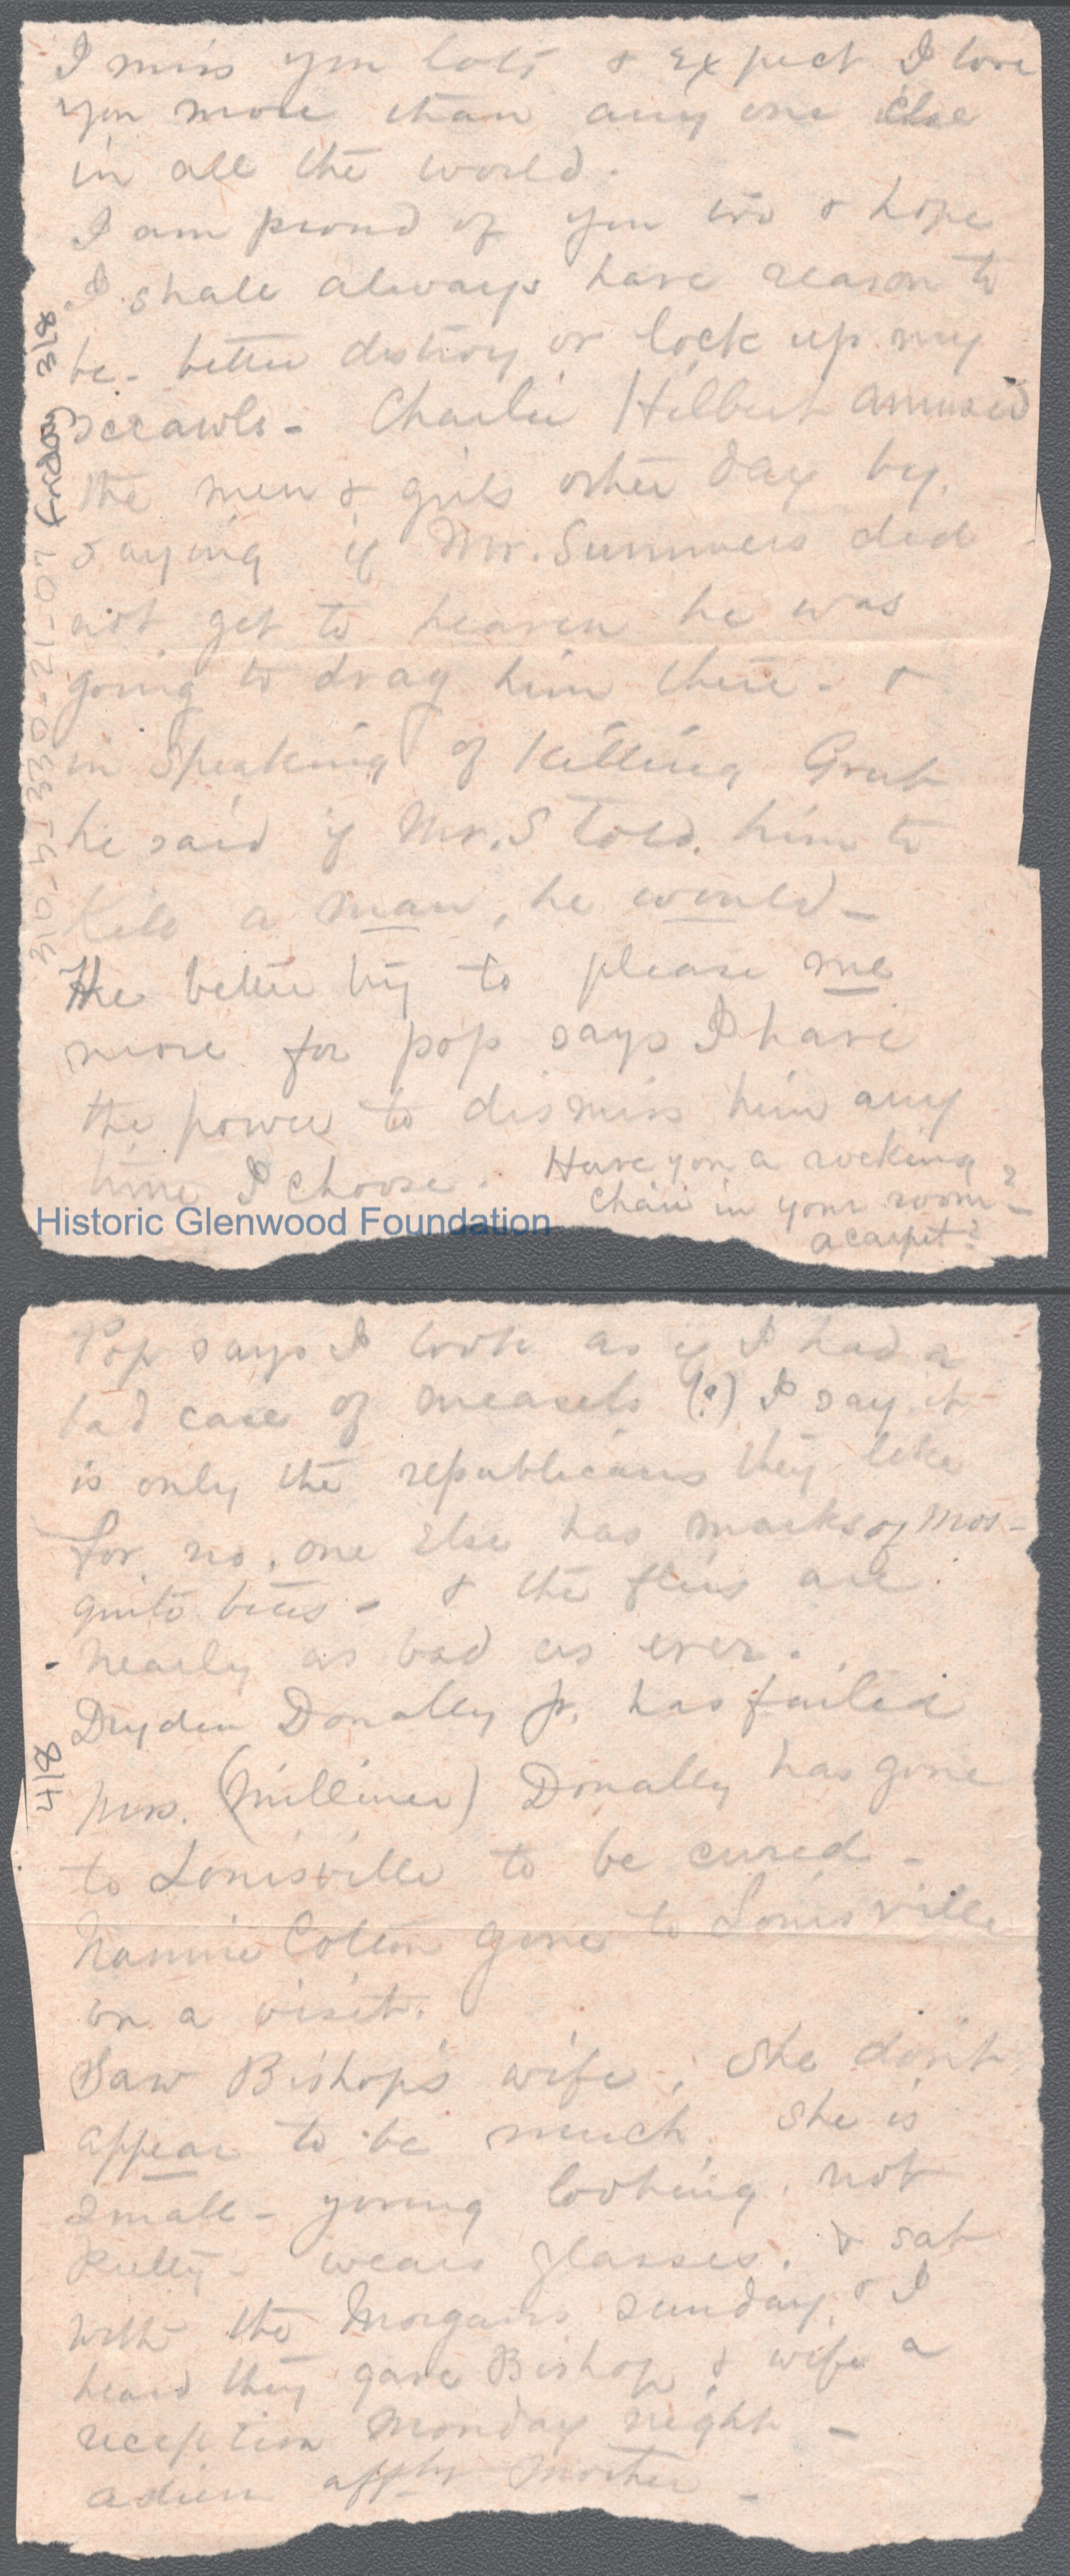 I miss you lots & expect I love
you more than any one else
in all the world.
I am proud of you two & hope
I shall always have reason to
be - better distroy or lock up my
scrawls - Charlie Hilbert amused
the men & girls other day by,
saying if Mr. Summers did
not get to heaven he was
going to drag him there - &
in speaking of killing Grub
he said if Mr. S told him to
kill a man, he would -
He better try to please me
more for pop says I have
the power to dismiss him any
time I choose.
Have you a rocking
chair in your room?
a carpet?
310-4-330-21-07 Friday 3/8
Historic Glenwood Foundation
Pop says I look as if I had a
bad case of measels (?) I say it
is only the republicans they like
for no, one else has marks of mos-
quito bites - & the flies are
nearly as bad as ever.
Dryden Donally Jr. has failed
Mrs. (Milliner) Donally has gone
to Louisville to be cured -
Nannie Cotton gone to Louisville
on a visit.
Saw Bishop's wife, She don't
appear to be much, she is
small - young looking, not
Pretty - wears glasses. & sat
with the Morgans Sunday, & I
heard they gave Bishop & wife a
reception Monday night -
adieu affly Mother -
4/8